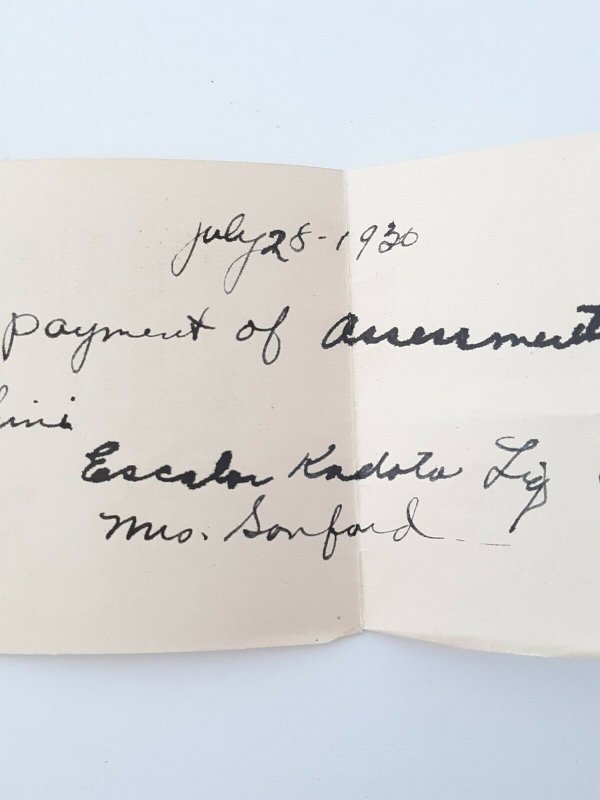 July 28-1930
payment of assessment
Escalon Kadota Fig
Mrs. Sanford